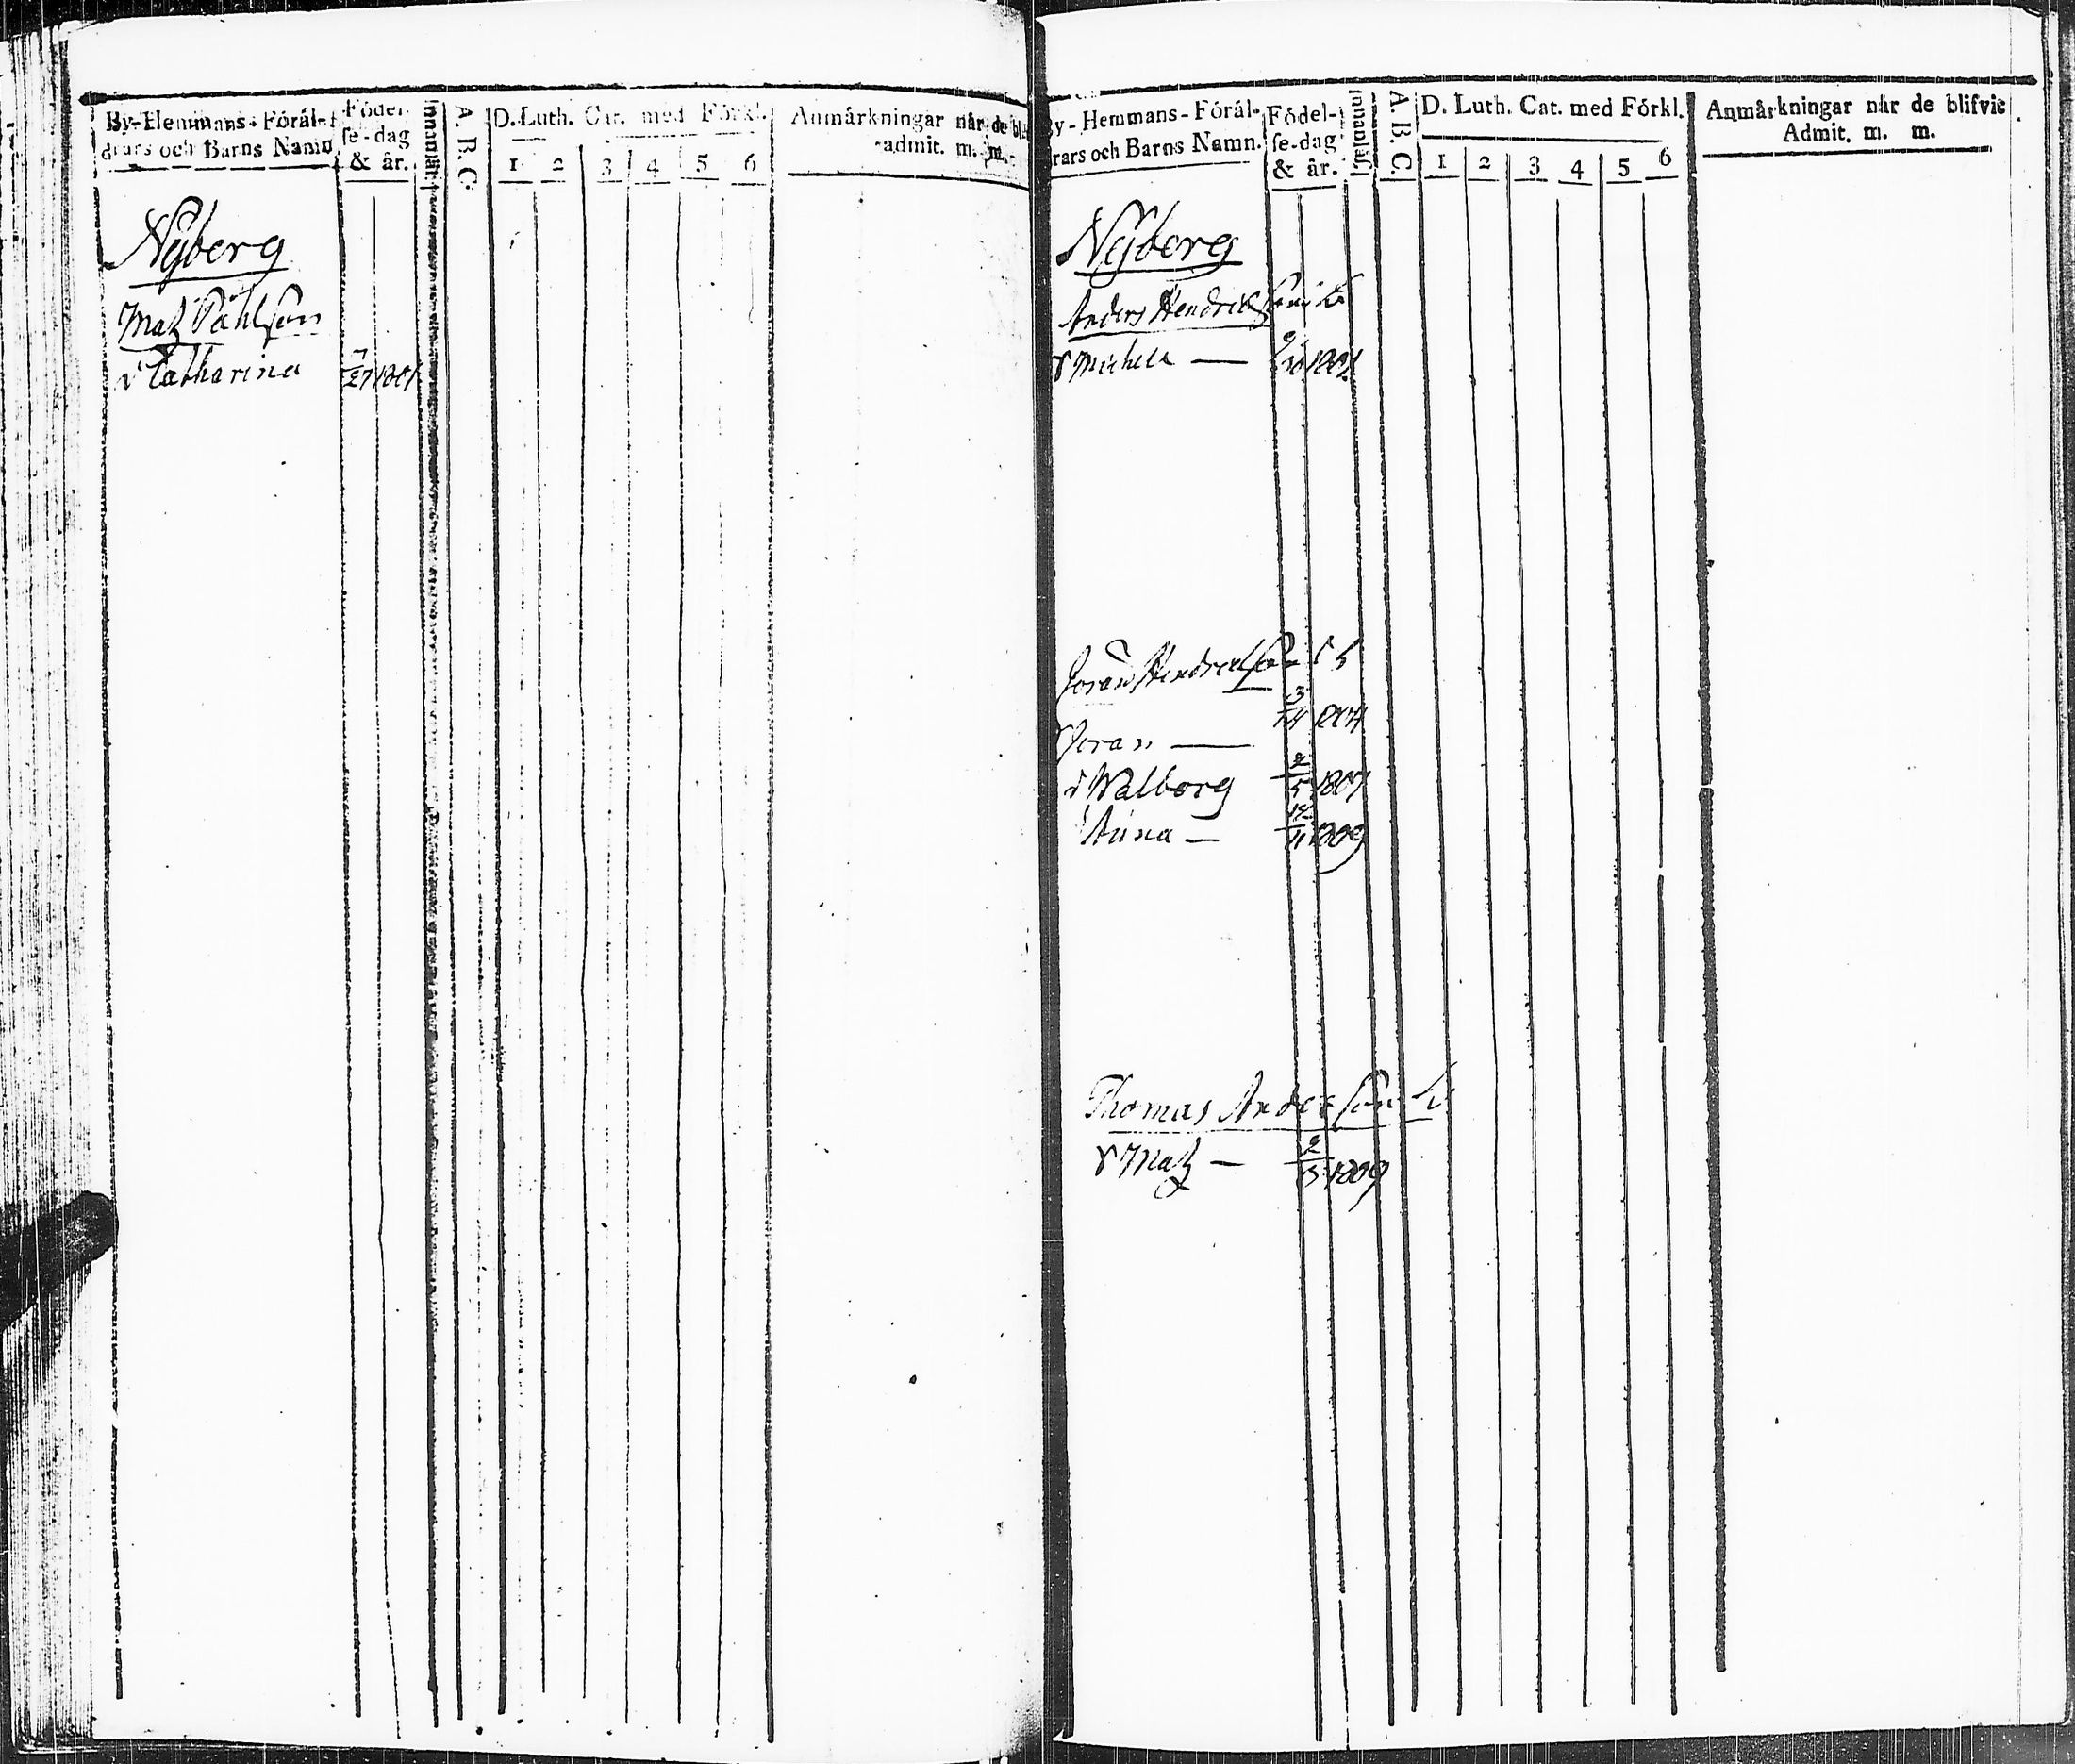 By-Hemmans-Förål-
drars och Barns Namn
Födel-
se-dag
& år.
Innanläsa
A. B. C.
D. Luth. Cat. med Förkl.
1 2 3 4 5 6
Anmårkningar når de bli
admit. m. m.
Nyberg
Matz Påhlson
d Catharina
By-Hemmans-Förål-
drars och Barns Namn.
Födel-
se-dag
& år.
Innanläs.
A. B. C.
D. Luth. Cat. med Förkl.
1 2 3 4 5 6
Anmårkningar når de blifvit
Admit. m. m.
Nyberg
Anders Hendrickson
Michell —
Joran Hendrickson
Joran —
d Walborg 2/5 1807
Anna — 1809
Thomas Anderson
Matz — 2/3 1809